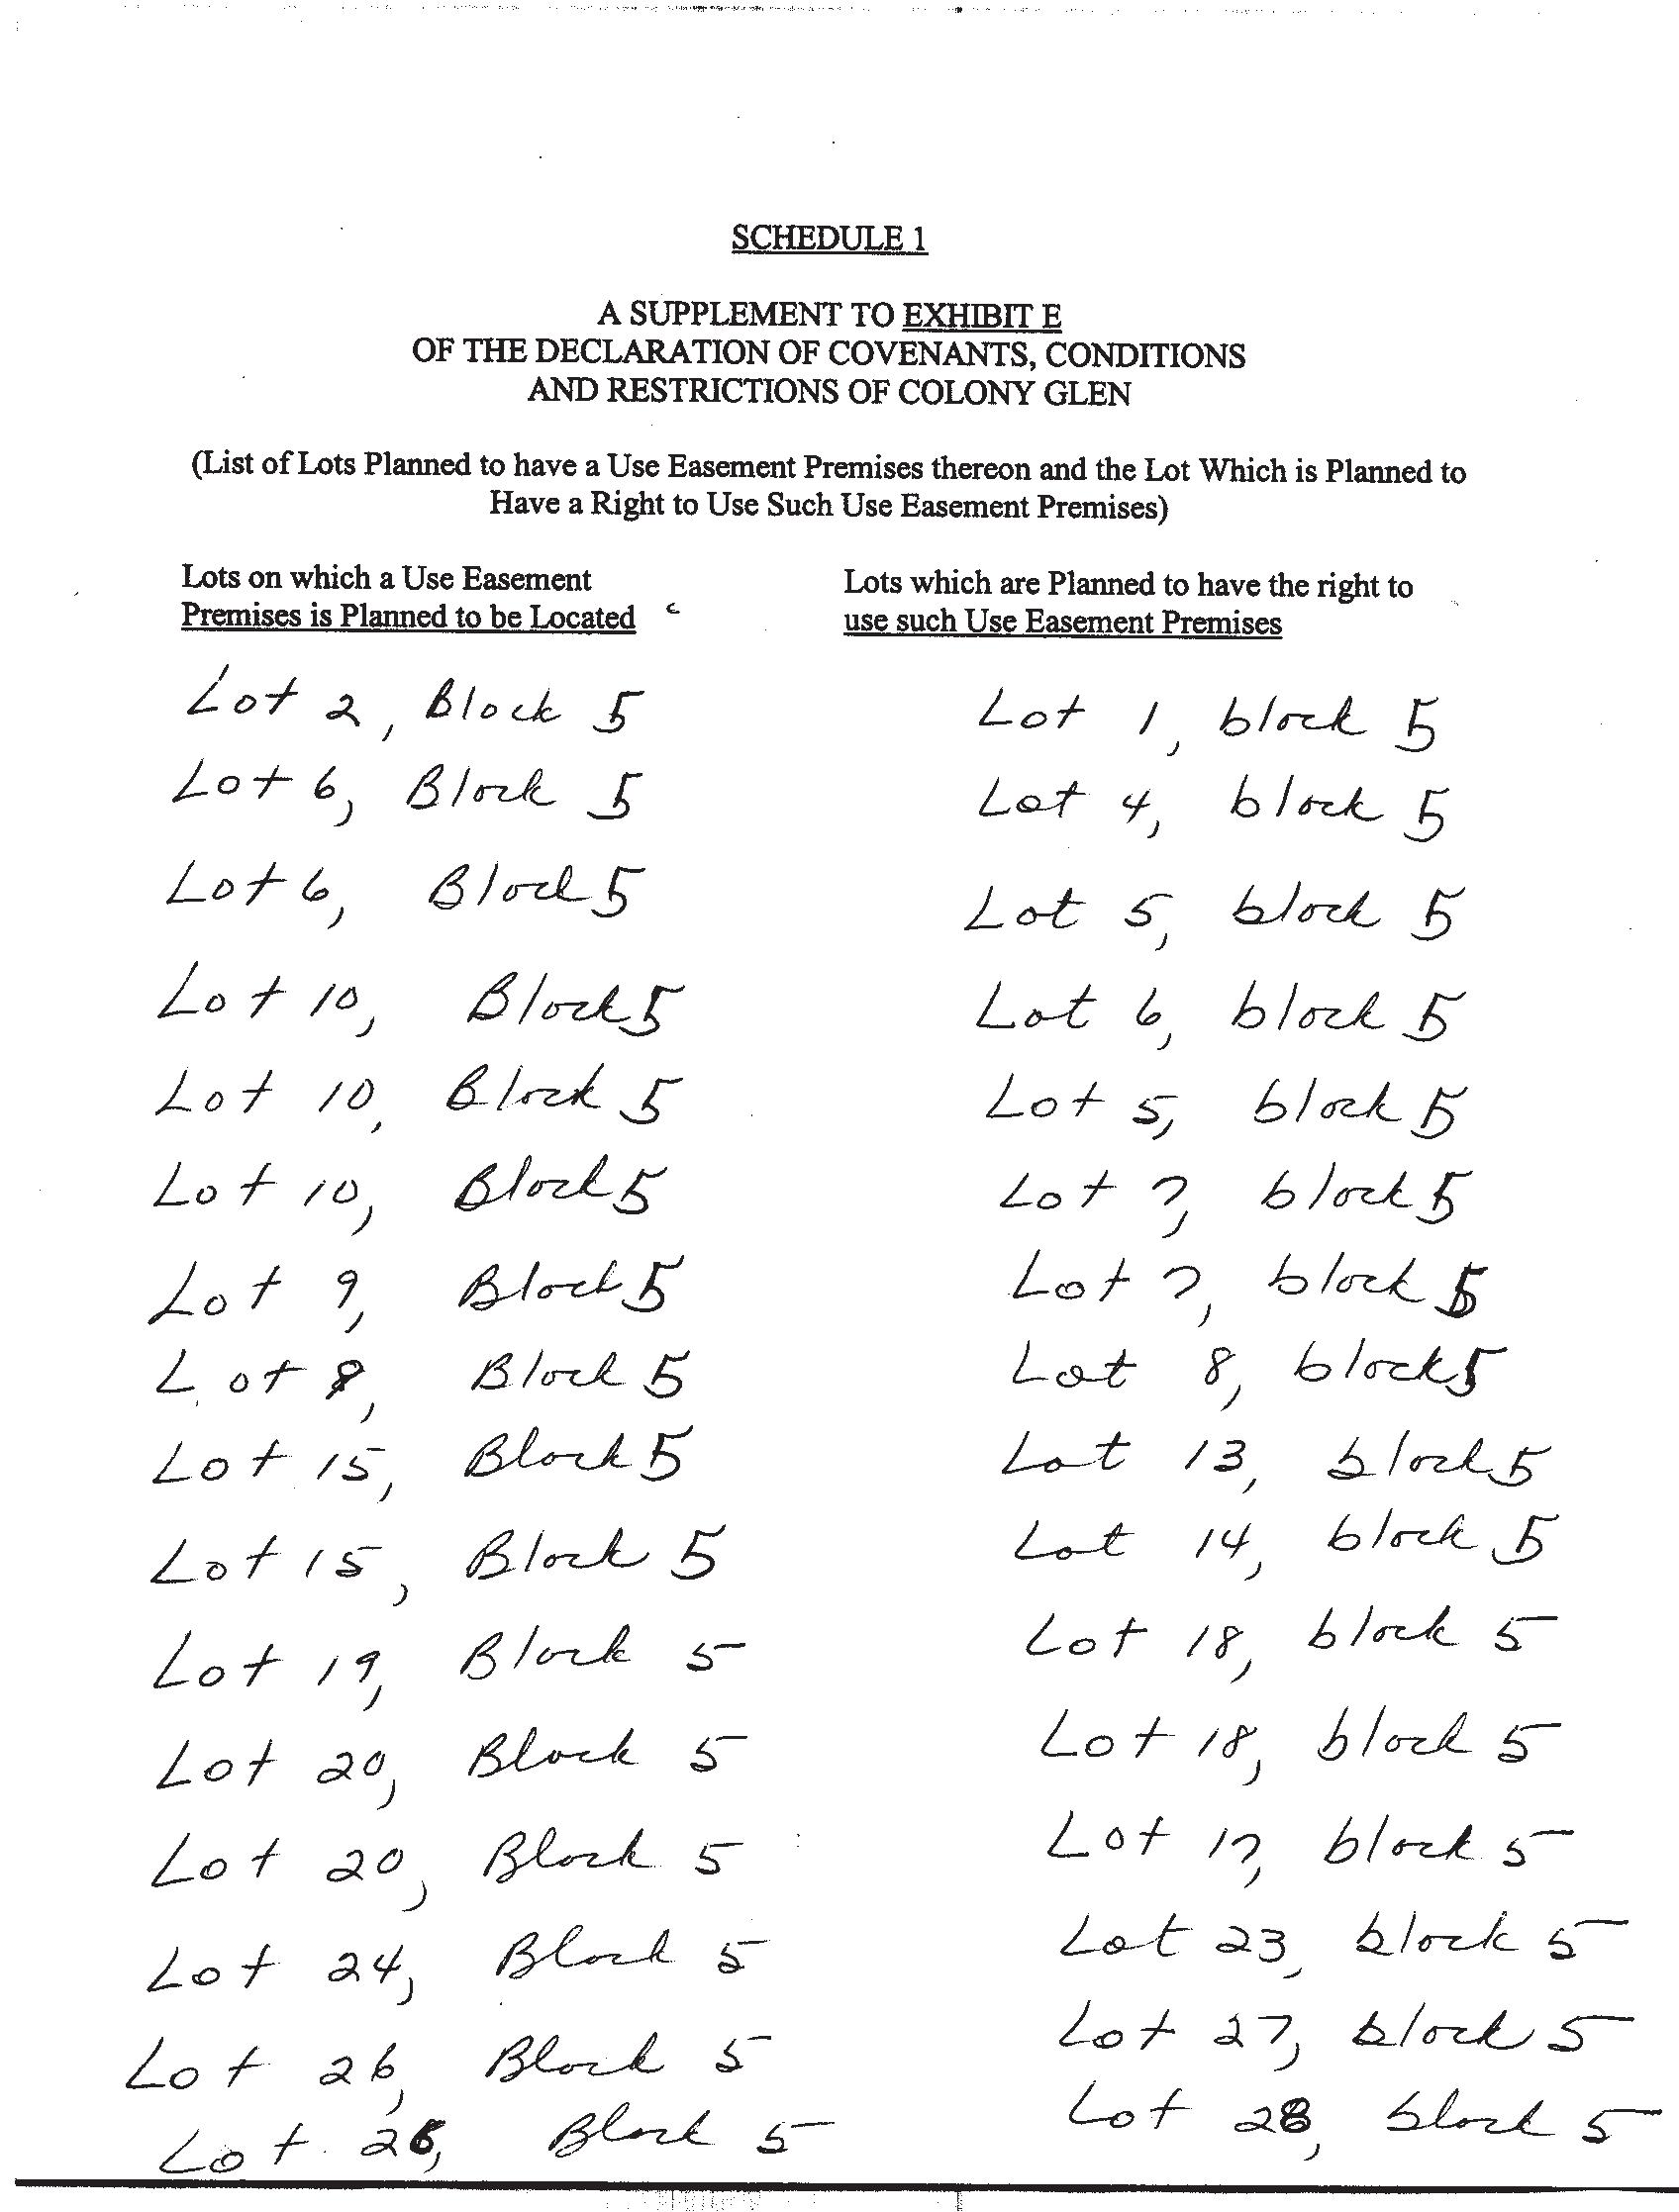 SCHEDULE 1
A SUPPLEMENT TO EXHIBIT E
OF THE DECLARATION OF COVENANTS, CONDITIONS
AND RESTRICTIONS OF COLONY GLEN
(List of Lots Planned to have a Use Easement Premises thereon and the Lot Which is Planned to
Have a Right to Use Such Use Easement Premises)
Lots on which a Use Easement
Premises is Planned to be Located
Lots which are Planned to have the right to
use such Use Easement Premises
Lot 2, Block 5 Lot 1, block 5
Lot 6, Block 5 Lot 4, block 5
Lot 6, Block 5 Lot 5, block 5
Lot 10, Block 5 Lot 6, block 5
Lot 10, Block 5 Lot 5, block 5
Lot 10, Block 5 Lot 7, block 5
Lot 9, Block 5 Lot 7, block 5
Lot 8, Block 5 Lot 8, block 5
Lot 15, Block 5 Lot 13, block 5
Lot 15, Block 5 Lot 14, block 5
Lot 19, Block 5 Lot 18, block 5
Lot 20, Block 5 Lot 18, block 5
Lot 20, Block 5 Lot 17, block 5
Lot 24, Block 5 Lot 23, block 5
Lot 26, Block 5 Lot 27, block 5
Lot 26, Block 5 Lot 28, block 5